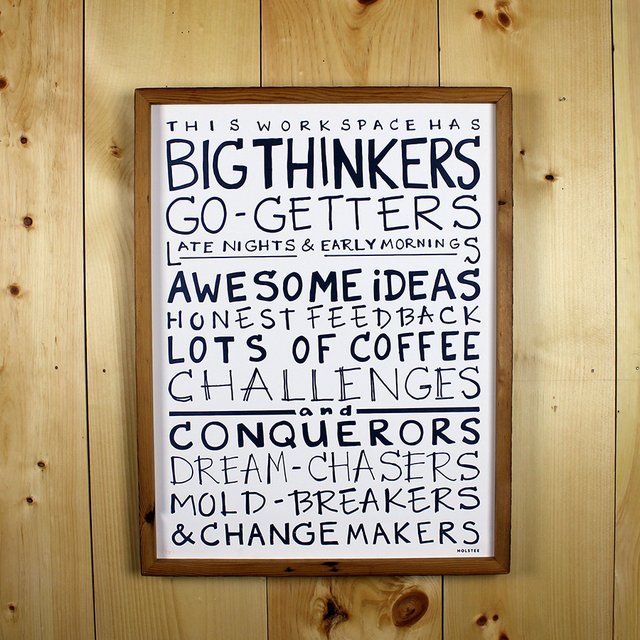 THIS WORKSPACE HAS
BIG THINKERS
GO-GETTERS
LATE NIGHTS & EARLY MORNINGS
AWESOME iDEAS
HONEST FEEDBACK
LOTS OF COFFEE
CHALLENGES
and
CONQUERORS
DREAM-CHASERS
MOLD-BREAKERS
& CHANGE MAKERS
HOLSTEE